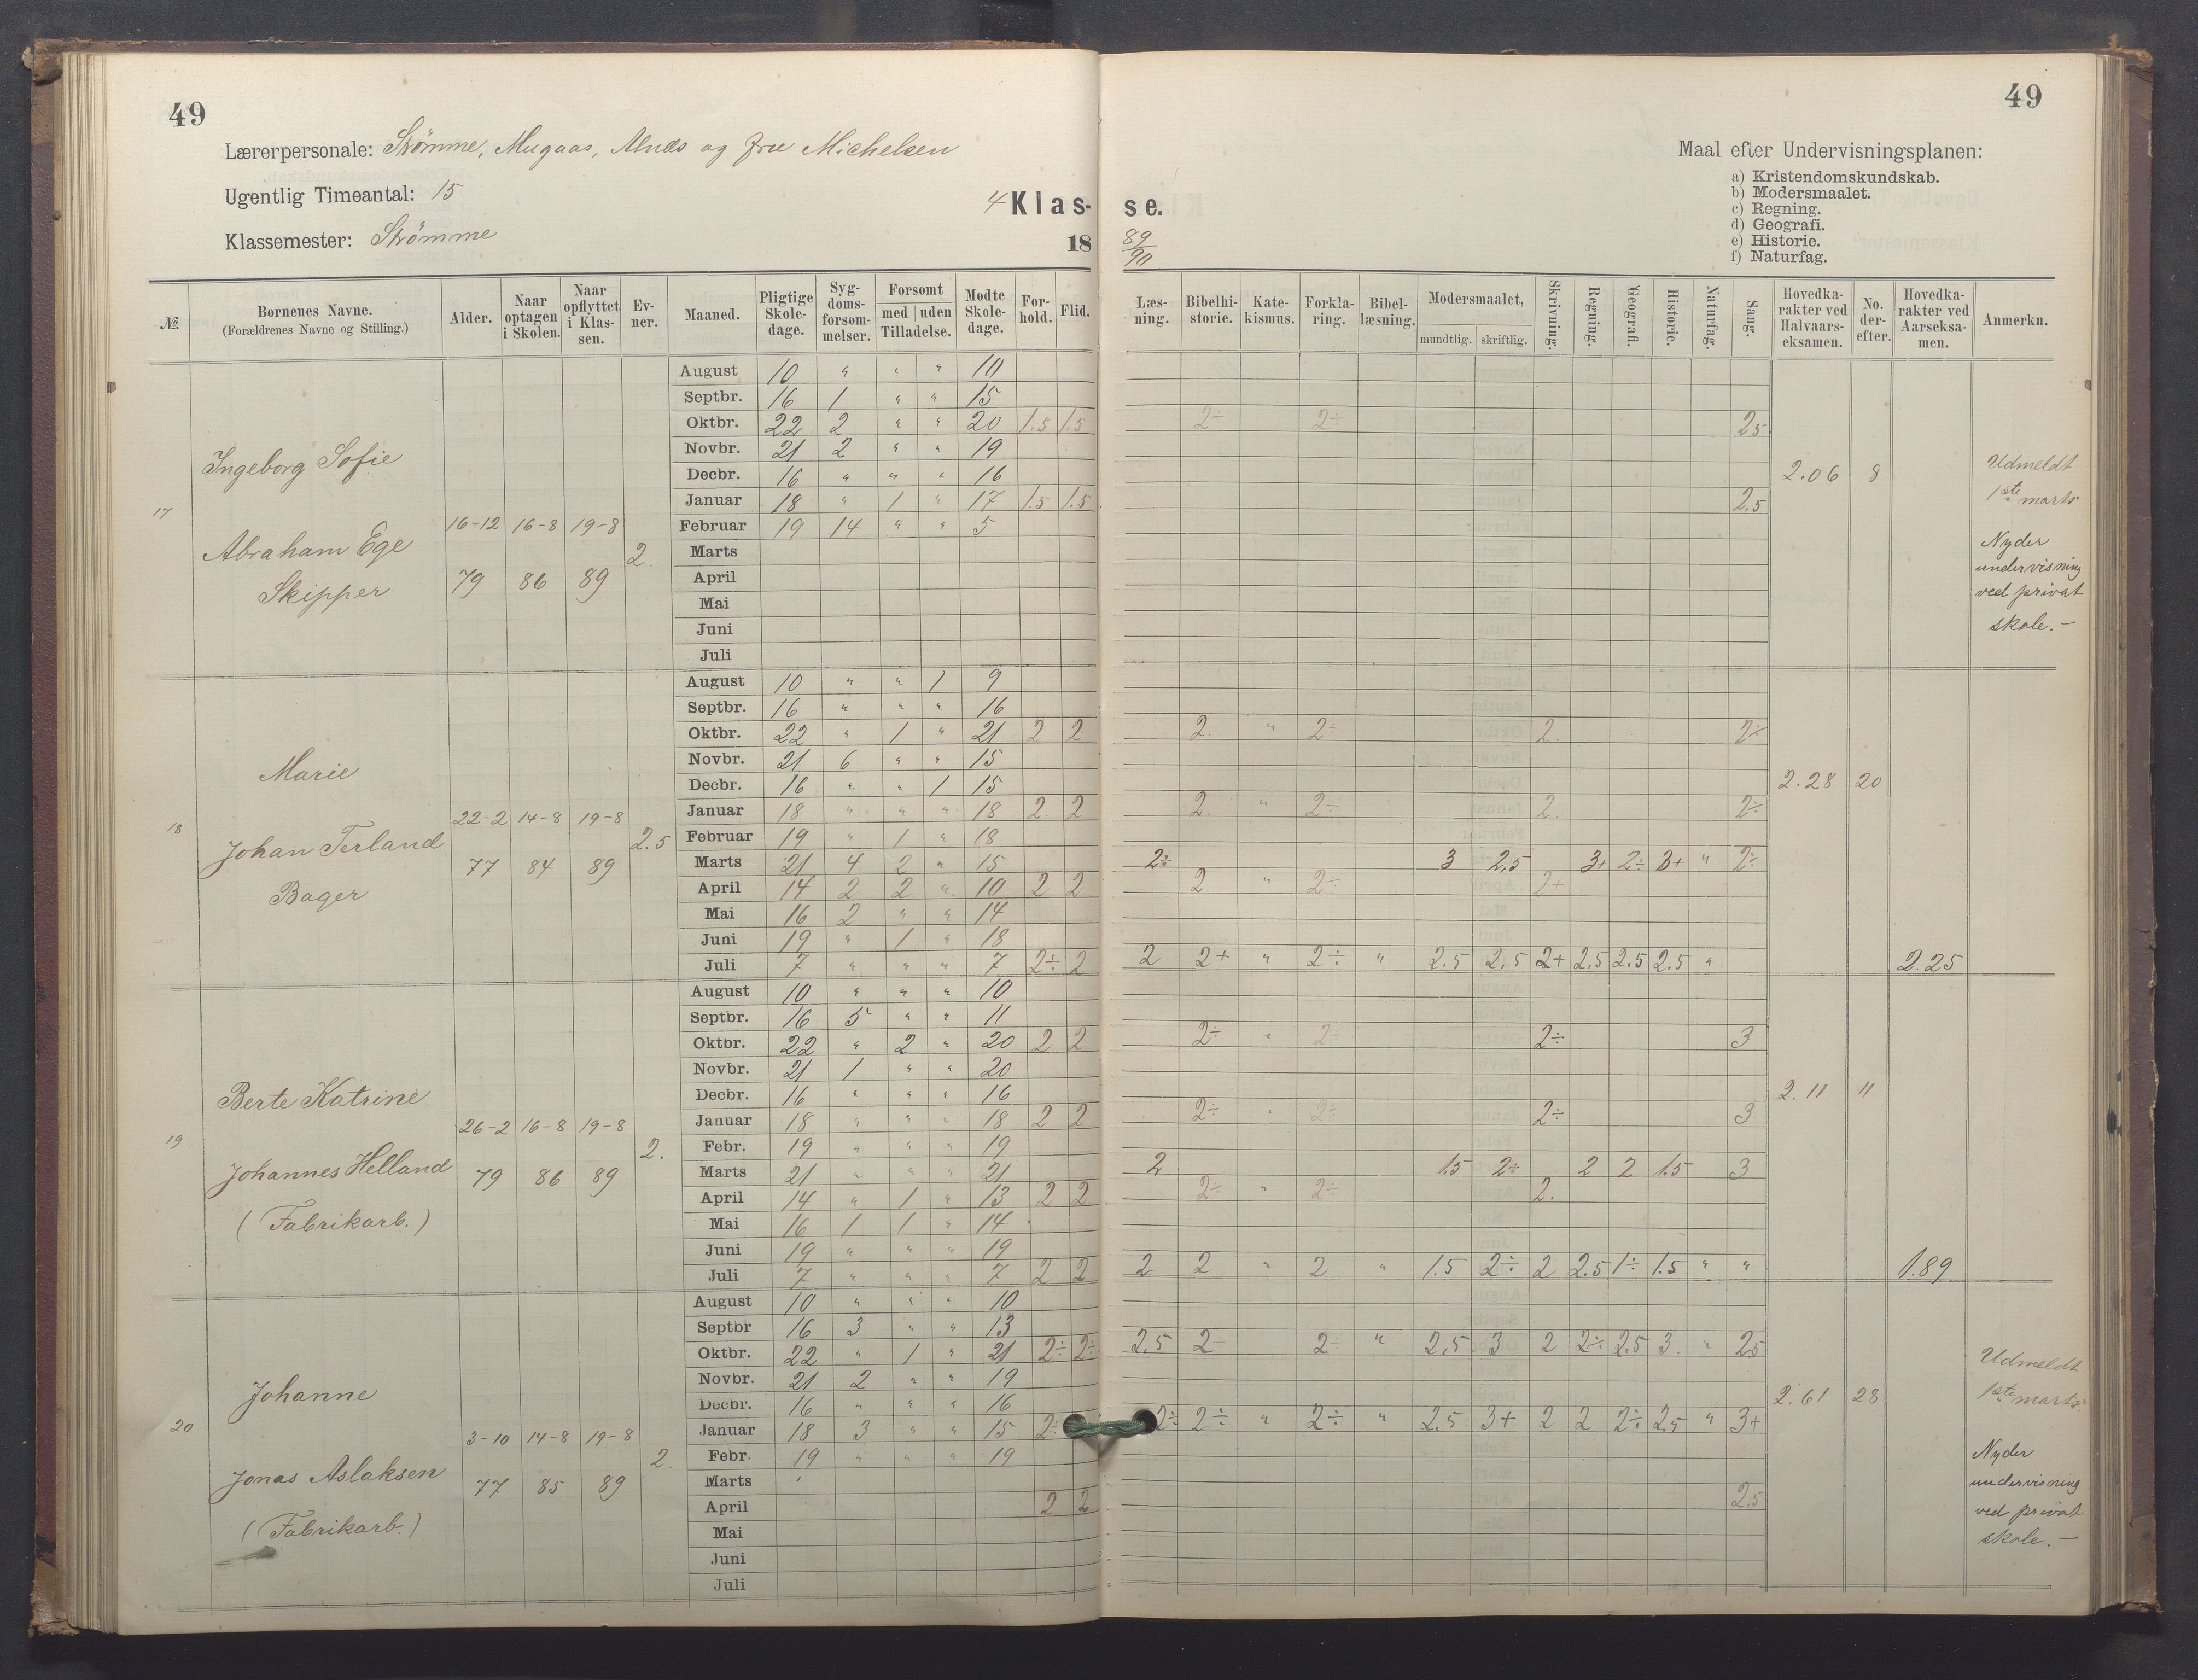 49
49
Lærerpersonale: Strömme, Mugaas, Alnæs og frk Michelsen
Ugentlig Timeantal: 15
Klassemester: Strömme
4 Klas- se.
18 89/90
Maal efter Undervisningsplanen:
a) Kristendomskundskab.
b) Modersmaalet.
c) Regning.
d) Geografi.
e) Historie.
f) Naturfag.
№ Børnenes Navne. (Forældrenes Navne og Stilling.) Alder. Naar optagen i Skolen. Naar opflyttet i Klassen. Evner. Maaned. Pligtige Skoledage. Sygdomsforsømmelser. Forsømt med uden Tilladelse. Mødte Skoledage. Forhold. Flid. Læsning. Bibelhistorie. Katekismus. Forklaring. Bibellæsning. Modersmaalet, mundtlig. skriftlig. Skrivning. Regning. Geografi. Historie. Naturfag. Sang. Hovedkarakter ved Halvaarseksamen. No. derefter. Hovedkarakter ved Aarseksamen. Anmerkn.
17 Ingeborg Sofie
Abraham Ege
Skipper
16-12 79 16-8 86 19-8 89 2.
August 10 " " " 10
Septbr. 16 1 " " 15
Oktbr. 22 2 " " 20 1.5 1.5 2÷ 2÷ 2.5
Novbr. 21 2 " " 19
Decbr. 16 " " " 16
2.06 8
Januar 18 " 1 " 17 1.5 1.5 2.5
Februar 19 14 " " 5
Marts
April
Mai
Juni
Juli
Udmeldt
1ste marts
Nyder
undervisning
ved privat
skole.-
18 Marie
Johan Terland
Bager
22-2 77 14-8 84 19-8 89 2.5
August 10 " " 1 9
Septbr. 16 " " " 16
Oktbr. 22 " 1 " 21 2 2 2. " 2÷ 2. 2÷
Novbr. 21 6 " " 15
Decbr. 16 " " 1 15
2.28 20
Januar 18 " " " 18 2. 2 2. " 2÷ 2. 2÷
Februar 19 " 1 " 18
Marts 21 4 2 " 15 2÷ 3 2.5 3+ 2÷ 3+ " 2÷
April 14 2 2 " 10 2 2 2. " 2÷ 2+
Mai 16 2 " " 14
Juni 19 " 1 " 18
Juli 7 " " " 7 2÷ 2 2 2+ " 2÷ " 2.5 2.5 2+ 2.5 2.5 2.5 " 2.25
19 Berte Katrine
Johannes Helland
(Fabrikarb.)
26-2 79 16-8 86 19-8 89 2.
August 10 " " " 10
Septbr. 16 5 " " 11
Oktbr. 22 " 2 " 20 2 2 2÷ " 2÷ 2÷ 3
Novbr. 21 1 " " 20
Decbr. 16 " " " 16
2.11 11
Januar 18 " " " 18 2 2 2÷ " 2÷ 2÷ 3
Febr. 19 " " " 19
Marts 21 " " " 21 2 1.5 2÷ 2 2 1.5 3
April 14 " 1 " 13 2 2 2÷ " 2÷ 2.
Mai 16 1 1 " 14
Juni 19 " " " 19
Juli 7 " " " 7 2 2 2 2 " 2 " 1.5 2÷ 2 2.5 1÷ 1.5 " " 1.89
20 Johanne
Jonas Aslaksen
(Fabrikarb.)
3-10 77 14-8 85 19-8 89 2.
August 10 " " " 10
Septbr 16 3 " " 13
Oktbr. 22 " 1 " 21 2÷ 2÷ 2.5 2 2 " 2.5 3 2 2÷ 2.5 3. " 2.5
Novbr. 21 2 " " 19
Decbr. 16 " " " 16
2.61 28
Januar 18 3 " " 15 2÷ 2÷ 2÷ " 2÷ " 2.5 3+ 2 2 2÷ 2.5 " 3+
Febr. 19 " " " 19
Marts
April 2 2 2.5
Mai
Juni
Juli
Udmeldt
1ste marts.
Nyder
undervisning
ved privat
skole.-